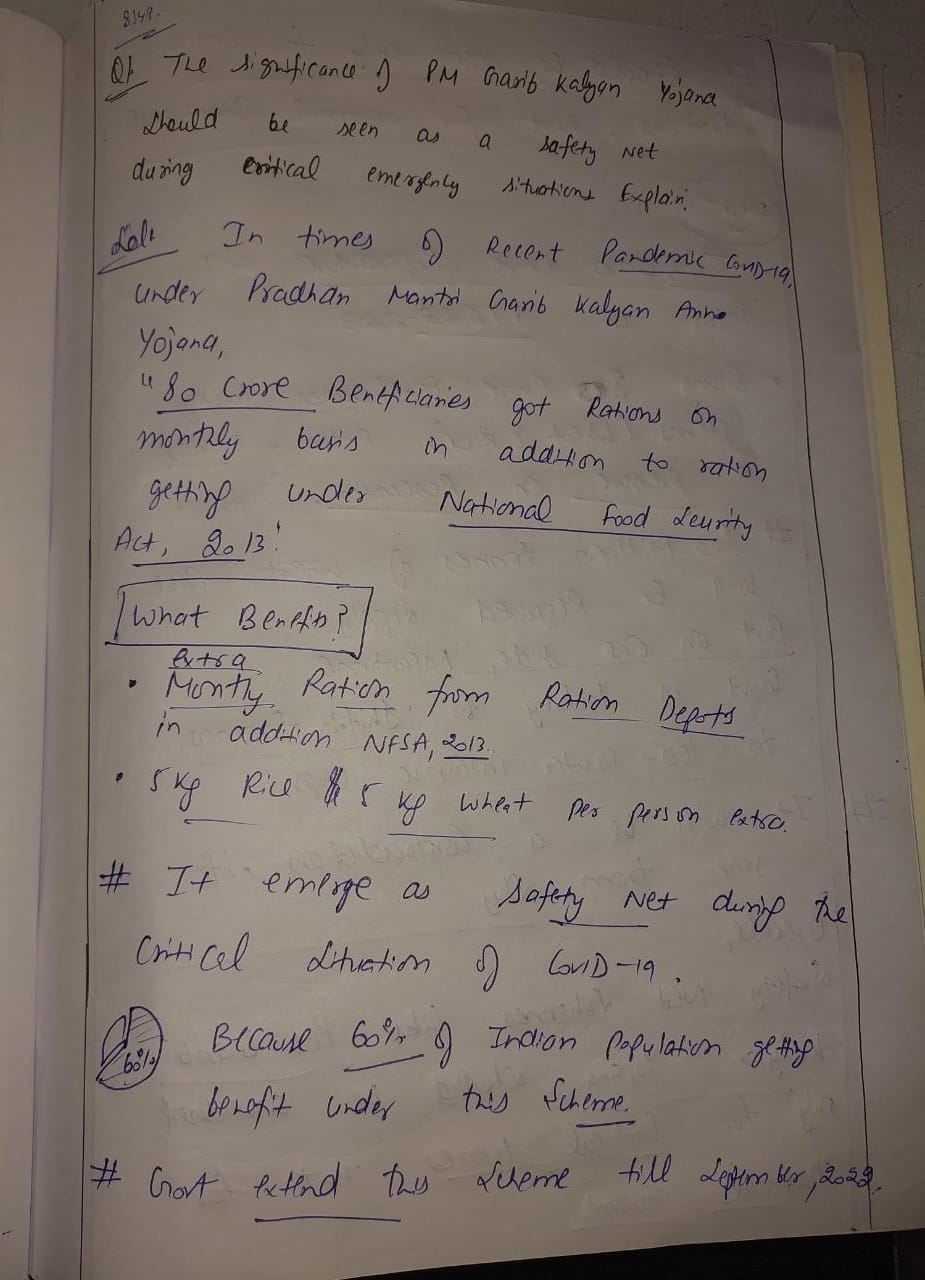 8348.
Q1 The significance of PM Garib Kalyan Yojana
should be seen as a safety Net
during critical emergency situations Explain.
Sol: In times of Recent Pandemic Covid-19,
under Pradhan Mantri Garib Kalyan Anna
Yojana,
"80 Crore Beneficiaries got Rations on
monthly basis in addition to ration
getting under National Food Security
Act, 2013"
What Benefits?
extra
• Montly Ration from Ration Depots
in addition NFSA, 2013.
• 5 kg Rice & 5 kg wheat per person extra.
# It emerge as Safety Net during the
Critical Situation of COVID-19.
60% Because 60% of Indian Population getting
benefit under this Scheme.
# Govt extend this Scheme till September, 2022.